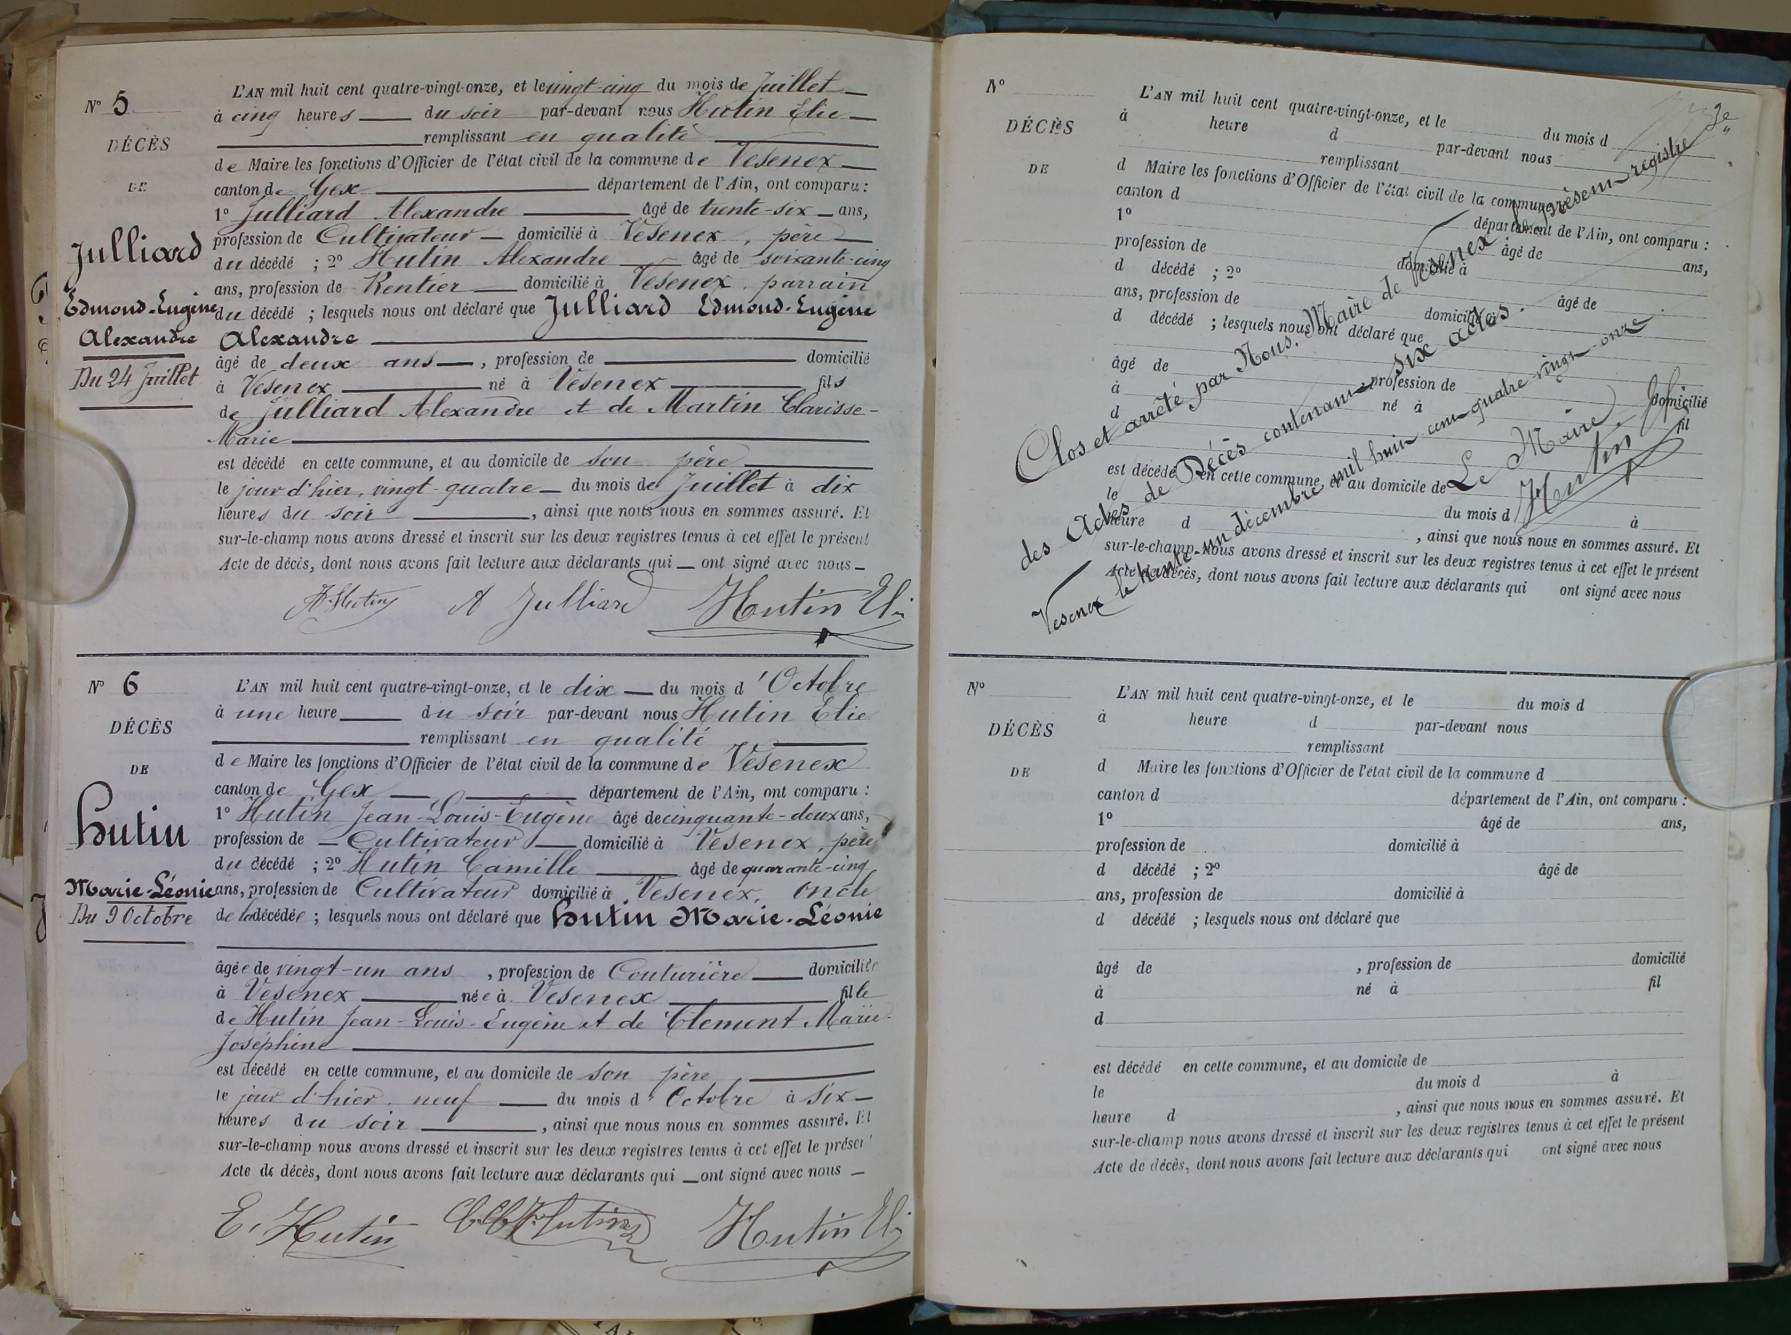 N° 5
DÉCÈS
DE
Julliard
Edmond-Eugène
Alexandre
Du 24 Juillet
L'AN mil huit cent quatre-vingt-onze, et le vingt-cinq du mois de Juillet
à cinq heures du soir par-devant nous Hutin Elie
remplissant en qualité
de Maire les fonctions d'Officier de l'état civil de la commune de Vesenex
canton de Gex département de l'Ain, ont comparu :
1° Julliard Alexandre âgé de trente-six ans,
profession de Cultivateur domicilié à Vesenex, père
du décédé ; 2° Hutin Alexandre âgé de soixante-cinq
ans, profession de Rentier domicilié à Vesenex, parrain
du décédé ; lesquels nous ont déclaré que Julliard Edmond-Eugène
Alexandre
âgé de deux ans, profession de domicilié
à Vesenex né à Vesenex fils
de Julliard Alexandre et de Martin Clarisse-
Marie
est décédé en cette commune, et au domicile de son père
le jour d'hier, vingt-quatre du mois de Juillet à dix
heures du soir, ainsi que nous nous en sommes assuré. Et
sur-le-champ nous avons dressé et inscrit sur les deux registres tenus à cet effet le présent
Acte de décès, dont nous avons fait lecture aux déclarants qui ont signé avec nous
A. Hutin A Julliard Hutin Eli
N° 6
DÉCÈS
DE
Hutin
Marie-Léonie
Du 9 Octobre
L'AN mil huit cent quatre-vingt-onze, et le dix du mois d'Octobre
à une heure du soir par-devant nous Hutin Elie
remplissant en qualité
de Maire les fonctions d'Officier de l'état civil de la commune de Vesenex
canton de Gex département de l'Ain, ont comparu :
1° Hutin Jean-Louis-Eugène âgé de cinquante-deux ans,
profession de Cultivateur domicilié à Vesenex, père
du décédé ; 2° Hutin Camille âgé de quarante-cinq
ans, profession de Cultivateur domicilié à Vesenex, oncle
de la décédée ; lesquels nous ont déclaré que Hutin Marie-Léonie
âgée de vingt-un ans, profession de Couturière domiciliée
à Vesenex née à Vesenex fille
de Hutin Jean-Louis-Eugène et de Clement Marie-
Joséphine
est décédé en cette commune, et au domicile de son père
le jour d'hier, neuf du mois d'Octobre à six
heures du soir, ainsi que nous nous en sommes assuré. Et
sur-le-champ nous avons dressé et inscrit sur les deux registres tenus à cet effet le présent
Acte de décès, dont nous avons fait lecture aux déclarants qui ont signé avec nous
E. Hutin Hutin Hutin Eli
N°
DÉCÈS
DE
L'AN mil huit cent quatre-vingt-onze, et le du mois d
à heure d par-devant nous
remplissant
d Maire les fonctions d'Officier de l'état civil de la commune d
canton d département de l'Ain, ont comparu :
1° âgé de ans,
profession de domicilié à
d décédé ; 2° âgé de
ans, profession de domicilié à
d décédé ; lesquels nous ont déclaré que
âgé de, profession de domicilié
à né à fil
d
est décédé en cette commune, et au domicile de
le du mois d à
heure d, ainsi que nous nous en sommes assuré. Et
sur-le-champ nous avons dressé et inscrit sur les deux registres tenus à cet effet le présent
Acte de décès, dont nous avons fait lecture aux déclarants qui ont signé avec nous
Clos et arrêté par Nous, Maire de Vesenex le présent registre
des Actes de Décès contenant six actes.
Vesenex le trente-un décembre mil huit cent quatre-vingt-onze.
Le Maire
Hutin Eli
N°
DÉCÈS
DE
L'AN mil huit cent quatre-vingt-onze, et le du mois d
à heure d par-devant nous
remplissant
d Maire les fonctions d'Officier de l'état civil de la commune d
canton d département de l'Ain, ont comparu :
1° âgé de ans,
profession de domicilié à
d décédé ; 2° âgé de
ans, profession de domicilié à
d décédé ; lesquels nous ont déclaré que
âgé de, profession de domicilié
à né à fil
d
est décédé en cette commune, et au domicile de
le du mois d à
heure d, ainsi que nous nous en sommes assuré. Et
sur-le-champ nous avons dressé et inscrit sur les deux registres tenus à cet effet le présent
Acte de décès, dont nous avons fait lecture aux déclarants qui ont signé avec nous